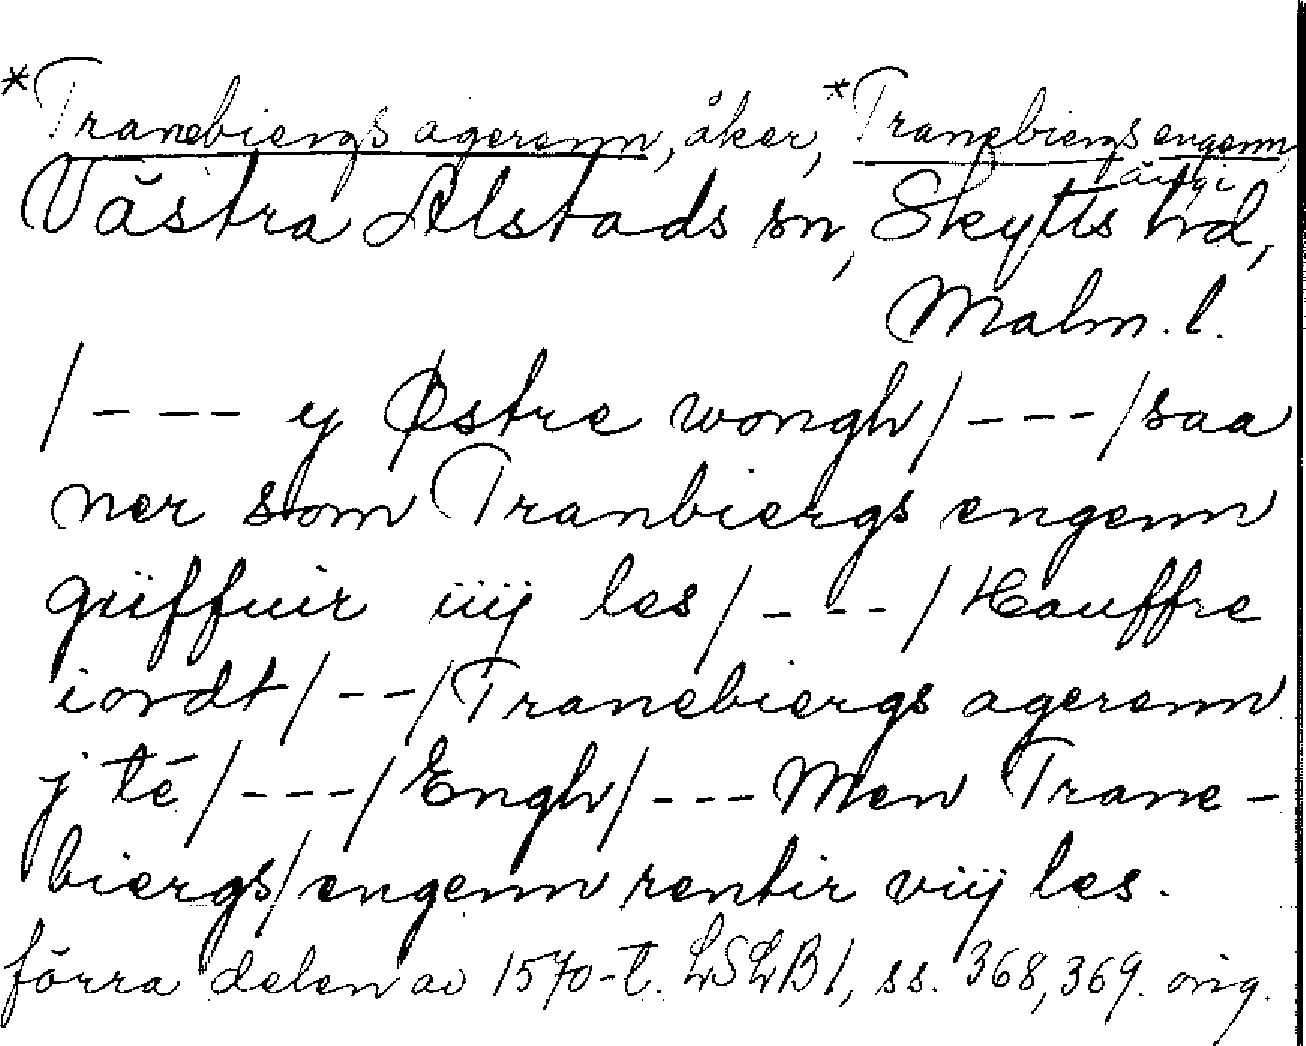 *Tranebiergs agerenn, åker, *Tranebiergs engenn,
äng i
Västra Alstads sn, Skytts hd,
Malm. l.
/--- y Østre wongh/---/saa
ner som Tranbiergs engenn
giiffuir iiij les/---/Hauffre
iordt/--/Tranebiergs agerenn
j té/---/Engh/---Men Trane-
biergs/engenn rentir viij les.
förra delen av 1570-t. LSLB 1, ss. 368, 369. orig.